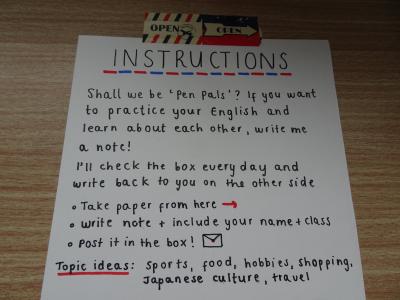 OPEN OPEN
INSTRUCTIONS
Shall we be 'Pen Pals'? If you want
to practice your English and
learn about each other, write me
a note!
I'll check the box everyday and
write back to you on the other side
Take paper from here →
write note + include your name + class
Post it in the box!
Topic ideas: Sports, food, hobbies, shopping,
Japanese culture, travel